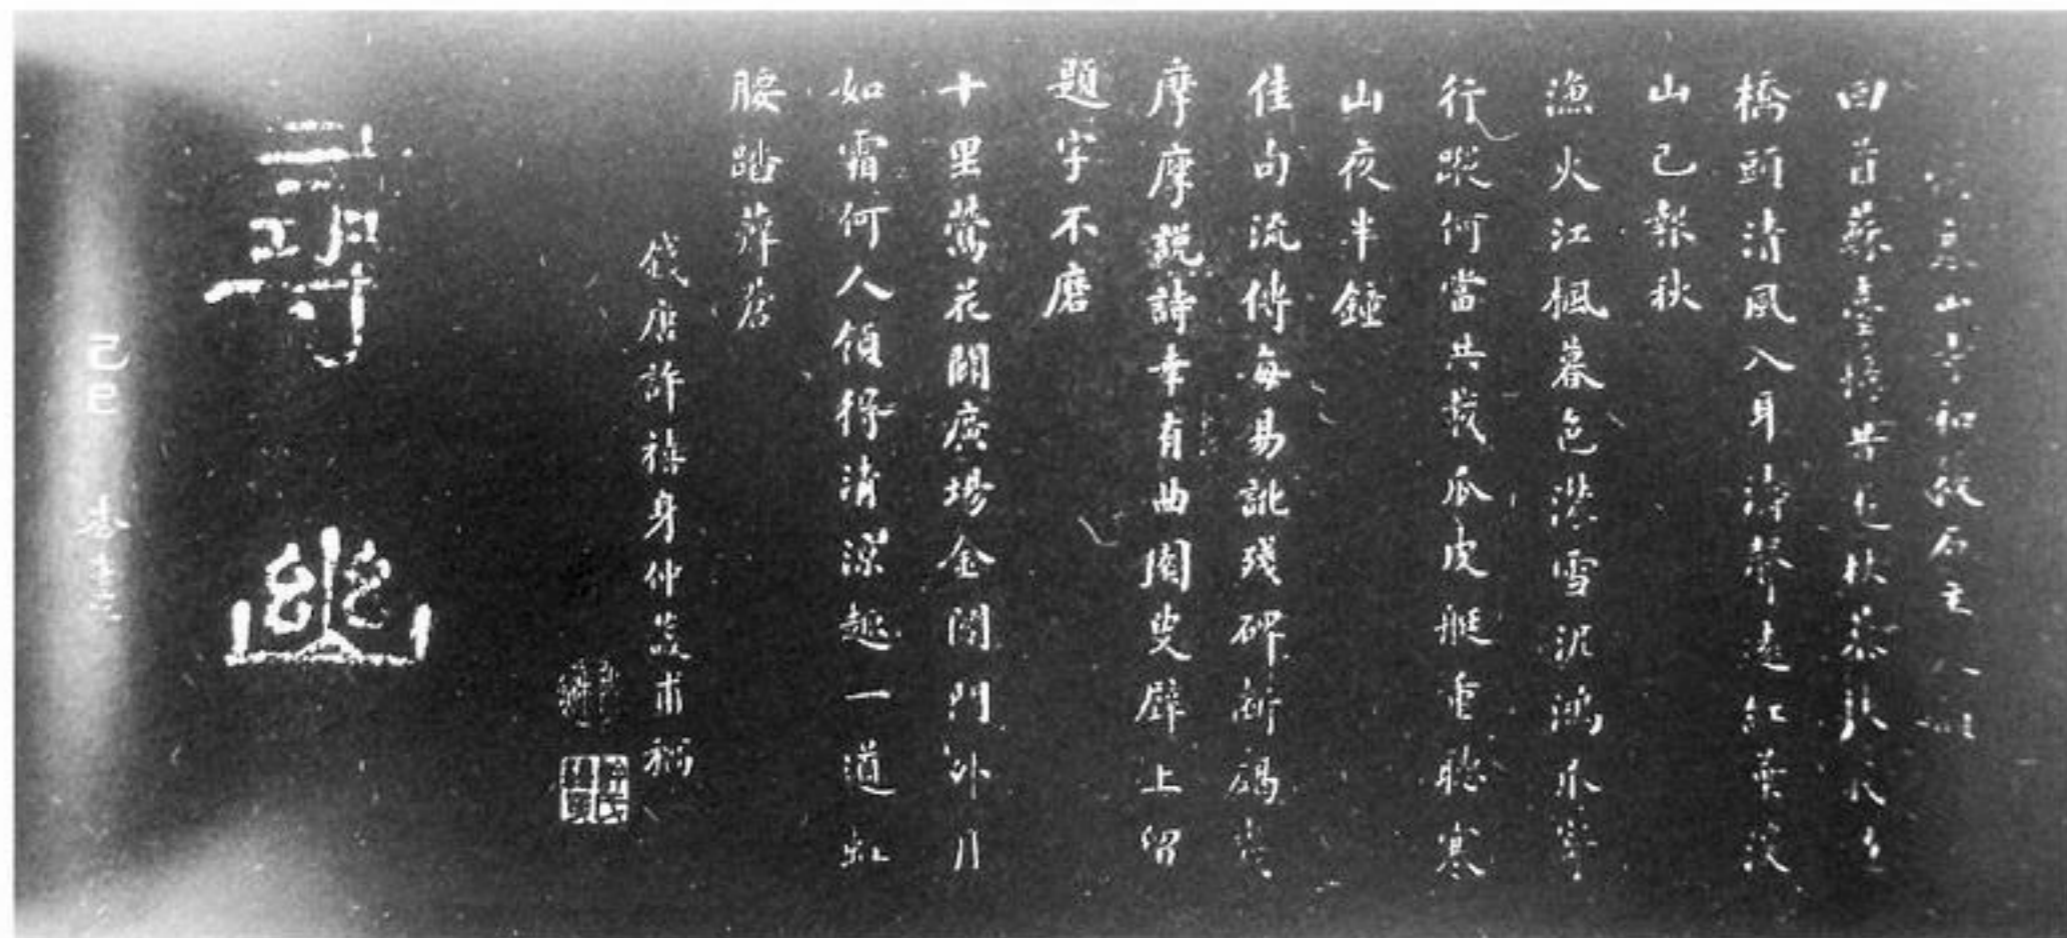 山寺和 石主
回首蘇臺 共 秋
橋頭清風入耳濤聲遠紅葉沒
山已報秋
漁火江楓暮色濃雪泥鴻爪寄
行蹤何當共我瓜皮艇重聽寒
山夜半鐘
佳句流傳每易訛殘碑斷碣
摩摩說詩幸有曲園叟壁上留
題字不磨
十里鶯花鬧廣場金閶門外月
如霜何人領得清涼趣一道虹
腰踏葑唐
錢唐許禧身仲萲甫稿
尋幽
己巳